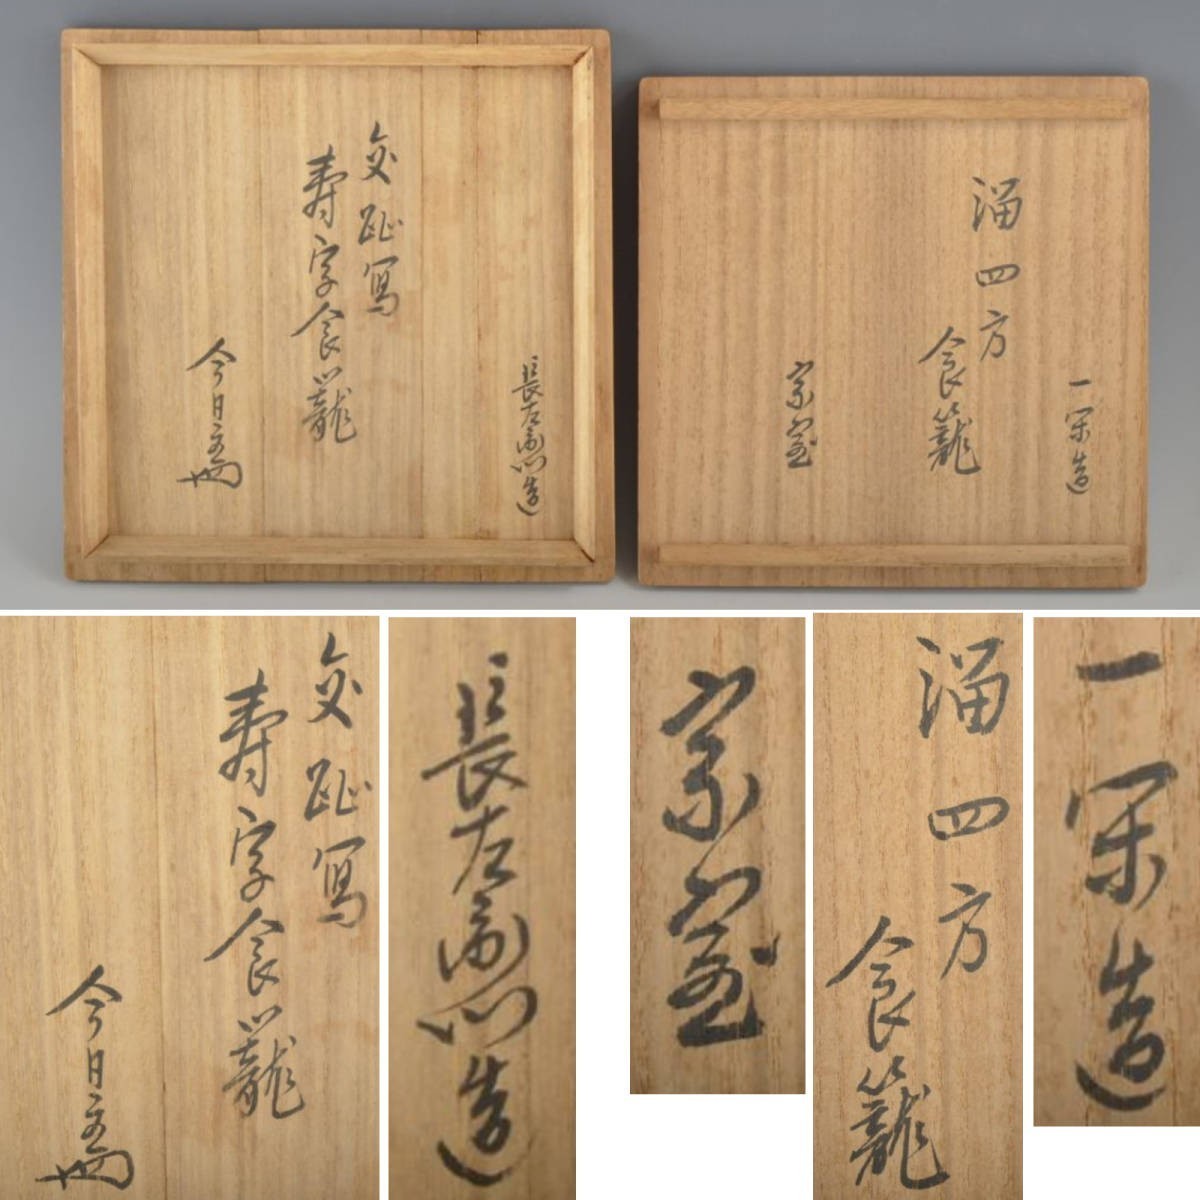 長左衛門造
交趾冩
寿字食籠
今日庵
一閑造
溜四方
食籠
宗室
交趾冩
寿字食籠
今日庵
長左衛門造
宗室
溜四方
食籠
一閑造